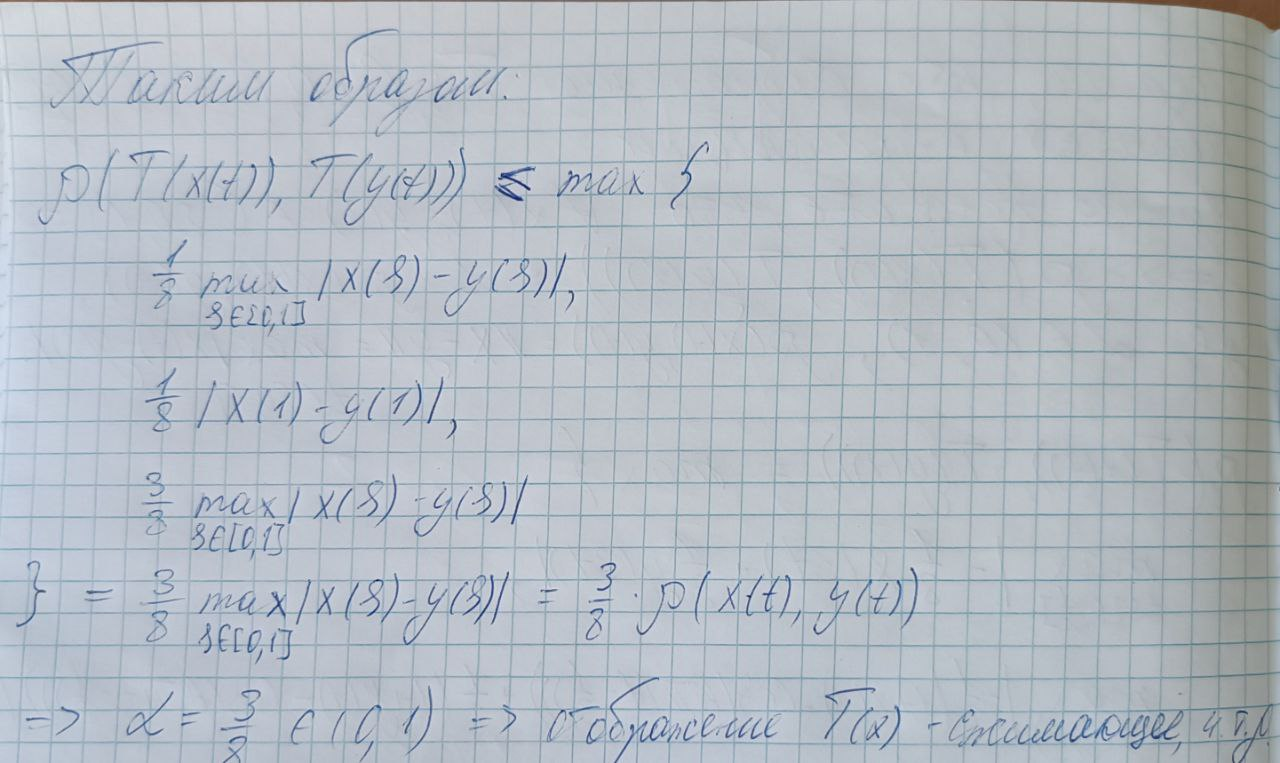 Таким образом:
ρ(T(x(t)), T(y(t))) ≤ max {
1/8 max |x(s) - y(s)|,
s∈[0,1]
1/8 |x(1) - y(1)|,
3/8 max |x(s) - y(s)|
s∈[0,1]
} = 3/8 max |x(s) - y(s)| = 3/8 · ρ(x(t), y(t))
s∈[0,1]
=> α = 3/8 ∈ (0,1) => отображение T(x) - сжимающее, ч.т.д.